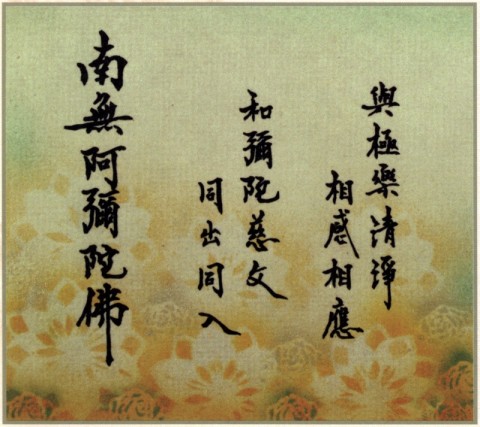 與極樂清淨
相感相應
和彌陀慈父
同出同入
南無阿彌陀佛